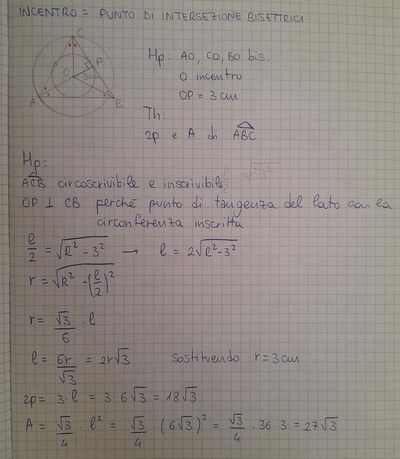 INCENTRO = PUNTO DI INTERSEZIONE BISETTRICI
C
P
O
3cm
A
B
Hp: AO, CO, BO bis.
O incentro
OP = 3 cm
Th:
2p e A di ABC
Hp:
ACB circoscrivibile e inscrivibile
OP ⊥ CB perché punto di tangenza del lato con la
circonferenza inscritta
l/2 = √(R² - 3²) → l = 2√(R² - 3²)
r = √(R² - (l/2)²)
r = √3/6 · l
l = 6r/√3 = 2r√3 Sostituendo r = 3 cm
2p = 3·l = 3·6√3 = 18√3
A = √3/4 · l² = √3/4 · (6√3)² = √3/4 · 36·3 = 27√3